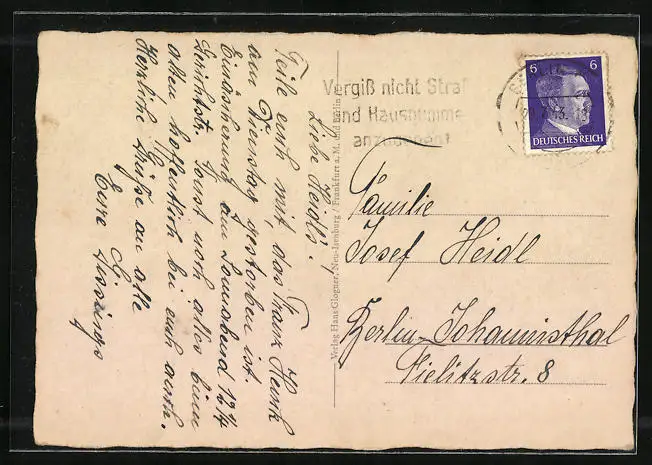 Liebe Heidl's!
Teile euch mit, das Franz Henk
am Dienstag gestorben ist.
Einäscherung am Sonnabend 12¼
Gerichtstr. Sonst noch alles beim
alten hoffentlich bei euch auch.
Herzliche Grüße an alle
Eure
Verlag Hans Glogner, Neu-Isenburg / Frankfurt a. M. und Berlin
Vergiß nicht Straß
und Hausnumme
anzugeben!
6 6
DEUTSCHES REICH
Familie
Josef Heidl
Berlin-Johannisthal
Sielitzstr. 8